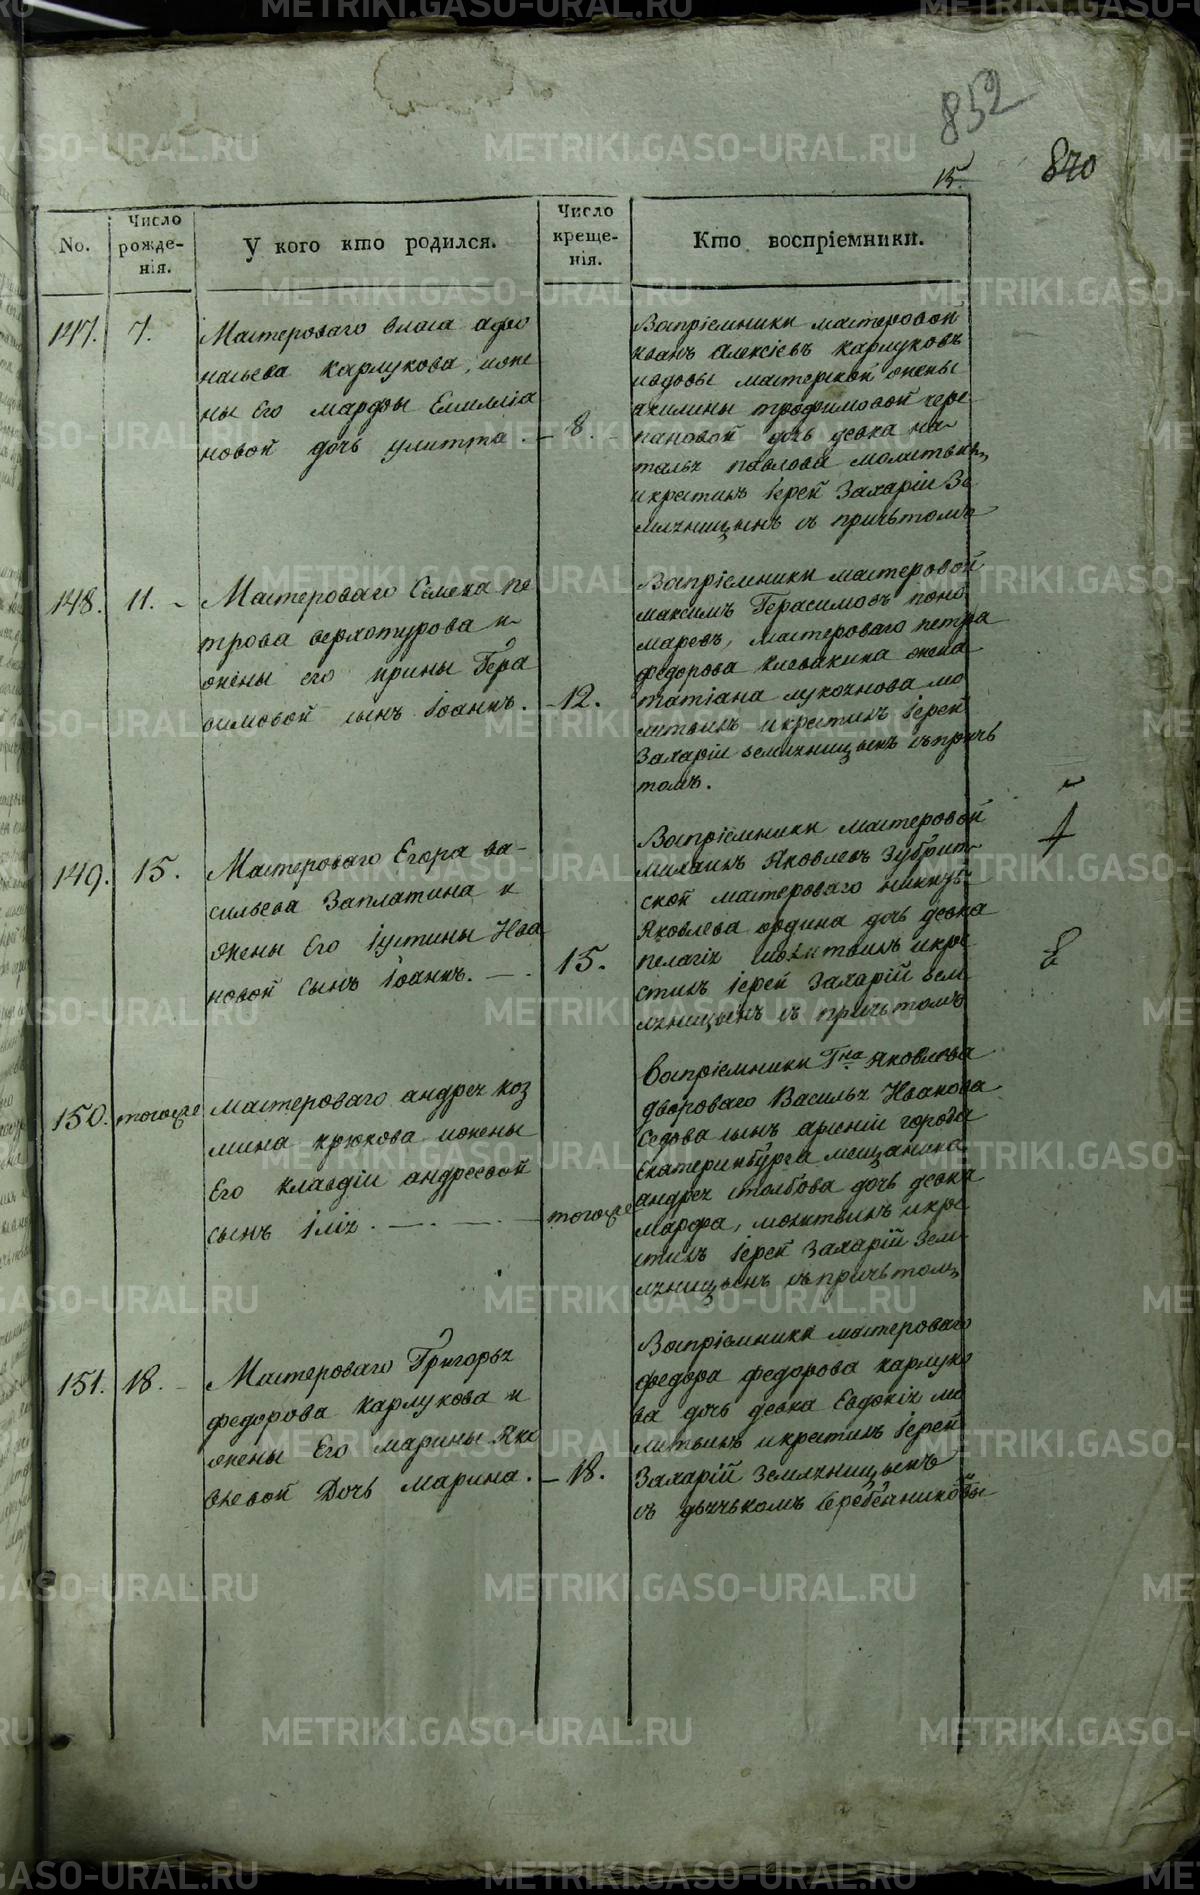 852
15.
840
No.
Число рожде-нія.
У кого кто родился.
Число креще-нія.
Кто воспріемники.
147.
7.
Мастероваго власа афо
насьева Карлукова, ижe
ны Его марфы Емиліа
новой дочь улитта.
8.
Воспріемники мастеровой
иванъ Алексіевъ Карлуковъ
ивдовы мастерской жены
акилины трофимовой чере
пановой дочь девка на-
талья павлова молитвилъ
икрестилъ Іерей Захарій Зе
млянницынъ съ причьтомъ
148.
11.
Мастероваго Семена пе
трова верхотурова и
жены его ирины Гера
симовой сынъ Іоаннъ.
12.
Воспріемники мастеровой
максимъ Герасимовъ поно
маревъ, мастероваго петра
федорова клевакина жена
татіана лукоянова мо
литвилъ икрестилъ Іерей
Захарій землянницынъ съпричь
томъ.
149.
15.
Мастероваго Егора ва-
сильева Заплатина и
жены Его Іустины Ива
новой сынъ Іоаннъ.
15.
Воспріемники мастеровой
михаилъ Яковлевъ Зубрит-
ской мастероваго
Яковлева ордина дочь девка
пелагія молитвилъ икре
стилъ Іерей Захарій зем
лянницынъ съ причьтомъ
150.
тогоже
мастероваго андрея коз
мина крюкова ижены
Его клавдіи андреевой
сынъ Ілія.
тогоже
Воспріемники Гна Яковлева
двороваго Василья Иванова
Седова сынъ арсеній города
Екатеринбурга мещанина
андрея столбова дочь девка
марфа, молитвилъ икре
стилъ Іерей Захарій Зем
лянницынъ съпричьтомъ
151.
18.
Мастероваго Григорья
федорова Карлукова и
жены Его марины Яко
влевой Дочь марина.
18.
Воспріемники мастероваго
федора федорова карлуко
ва дочь девка Евдокія мо
литвилъ икрестилъ Іерей
Захарій Землянницынъ
съ дьячькомъ Серебенниковы
METRIKI.GASO-URAL.RU